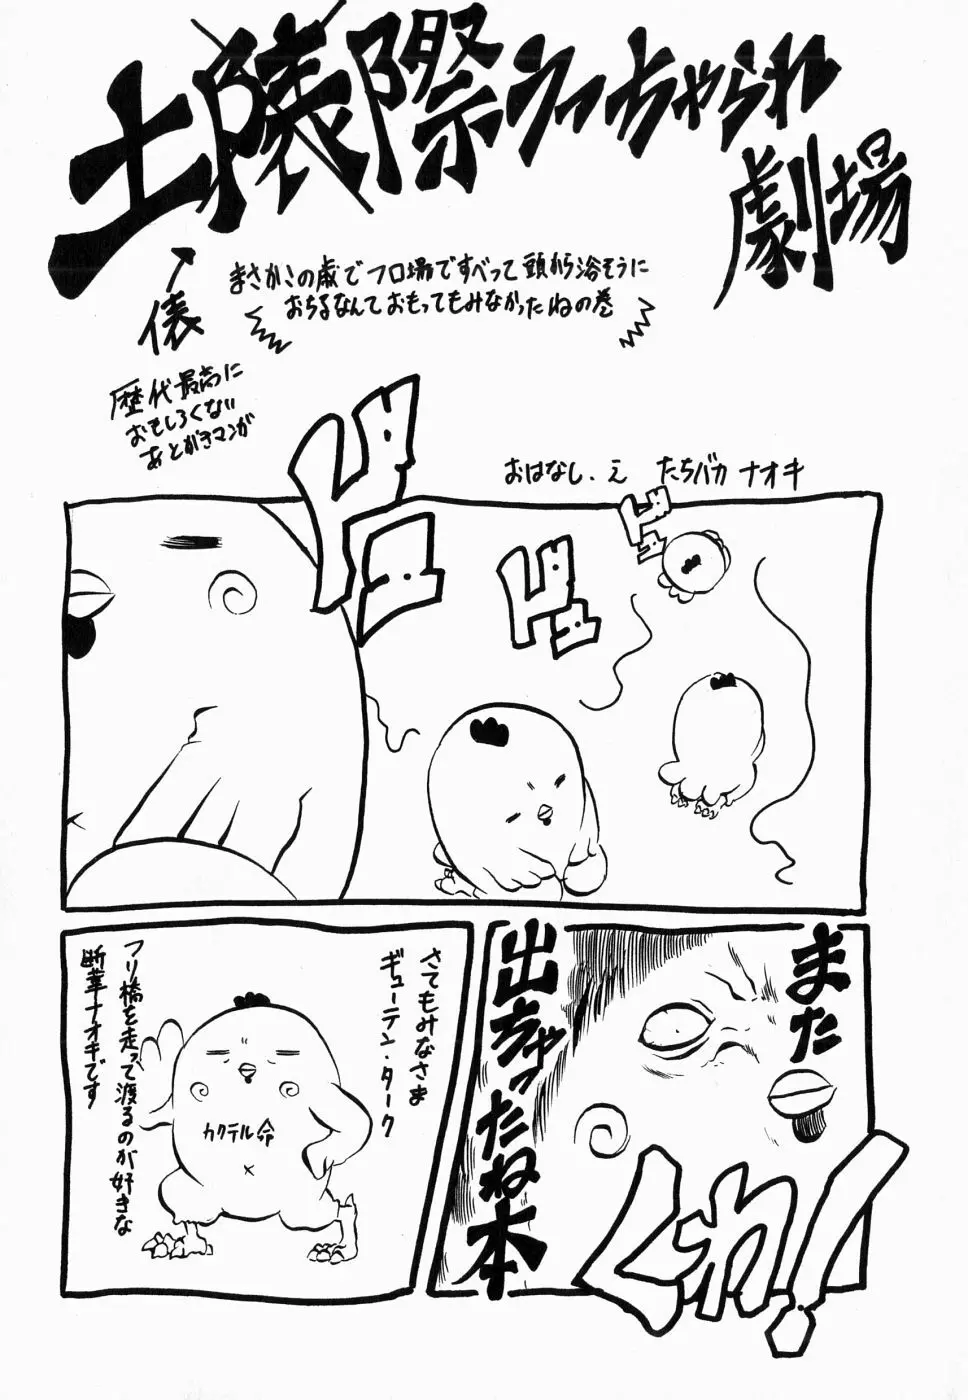 土俵際うっちゃられ
劇場
俵
まさかこの歳でフロ場ですべって頭から浴そうに
おちるなんておもってもみなかったねの巻
歴代最高に
おもしろくない
あとがきマンガ
おはなし、え たちバカ ナオキ
ドドドドドド
また
出ちゃったね本
くわっ!
さてもみなさま
ギューテン・ターク
カクテル命
フリ橋を走って渡るのが好きな
断華ナオキです